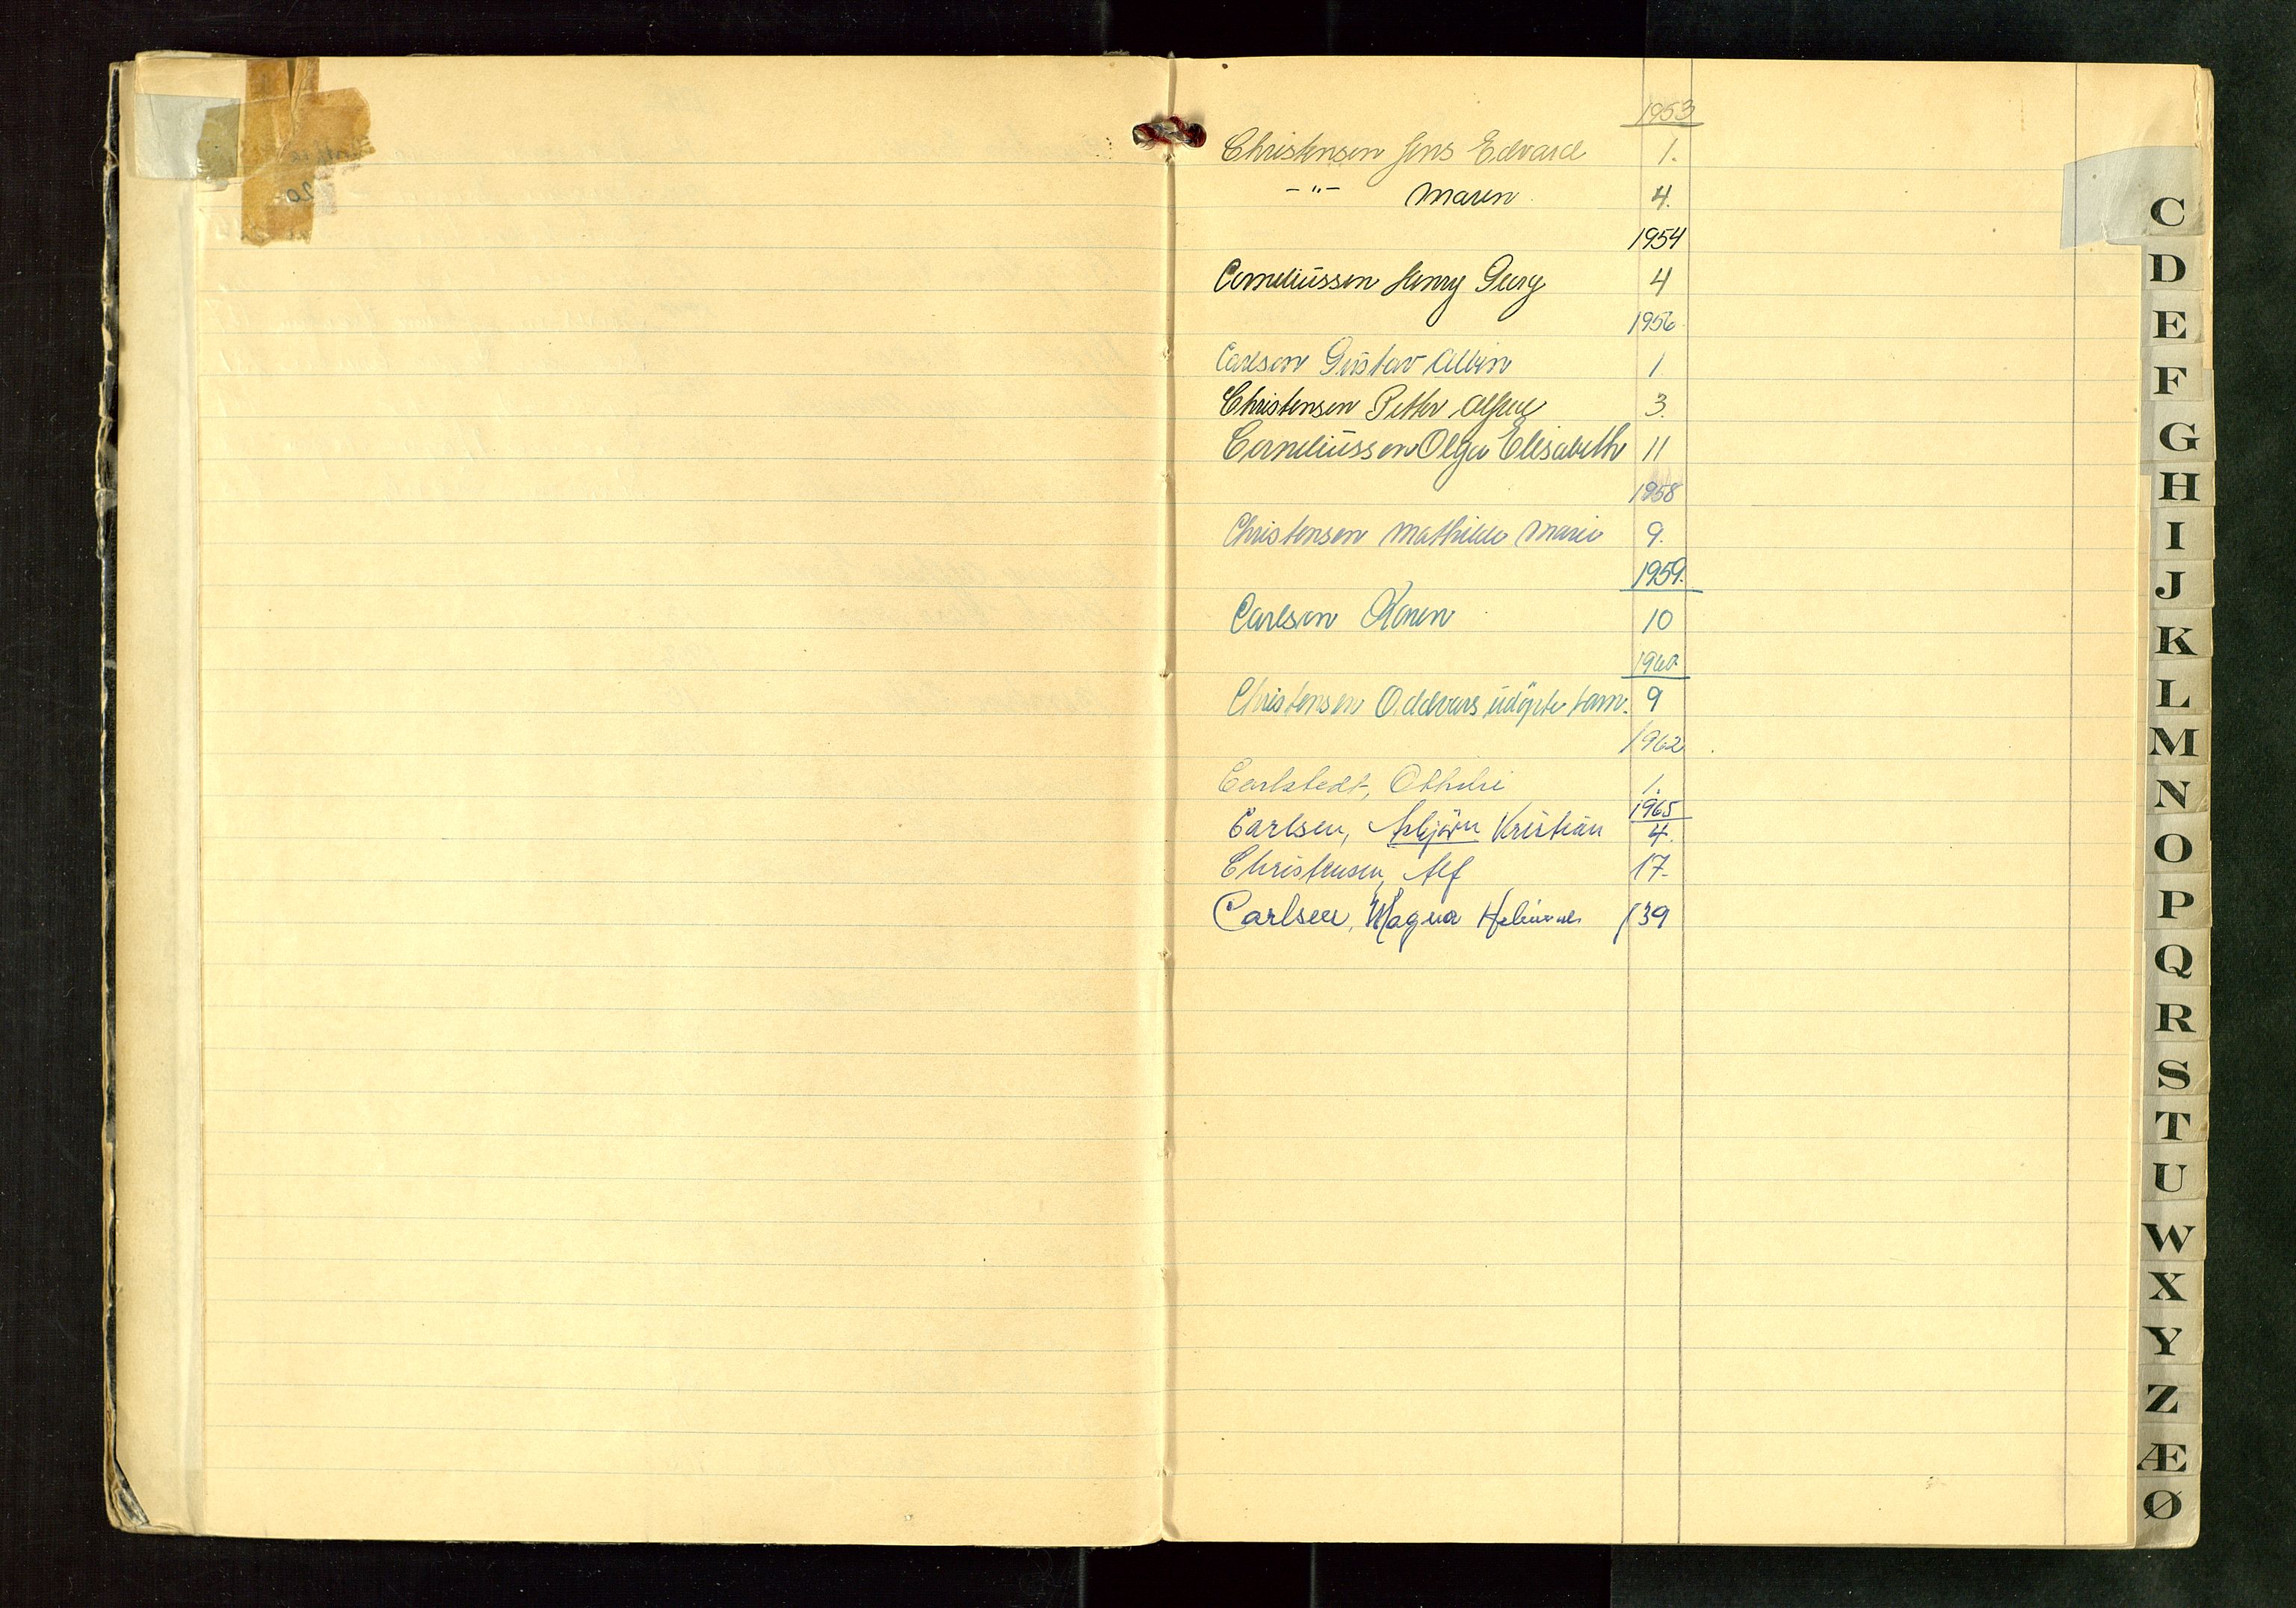 1953
Christensen Jens Edvard 1.
-"- Maren 4.
1954
Corneliussen Henry Georg 4
1956
Carlson Gustav Albin 1
Christensen Petter Alfred 3.
Corneliussen Olga Elisabeth 11
1958
Christensen Mathilde Marie 9.
1959.
Carlson Karen 10
1960
Christensen Oddvars udöpte barn. 9
1962
Carlstedt, Othilie 1.
1965
Carlsen, Asbjörn Kristian 4.
Christensen, Alf 17.
Carlsen, Magna 39
C
D
E
F
G
H
I
J
K
L
M
N
O
P
Q
R
S
T
U
W
X
Y
Z
Æ
Ø